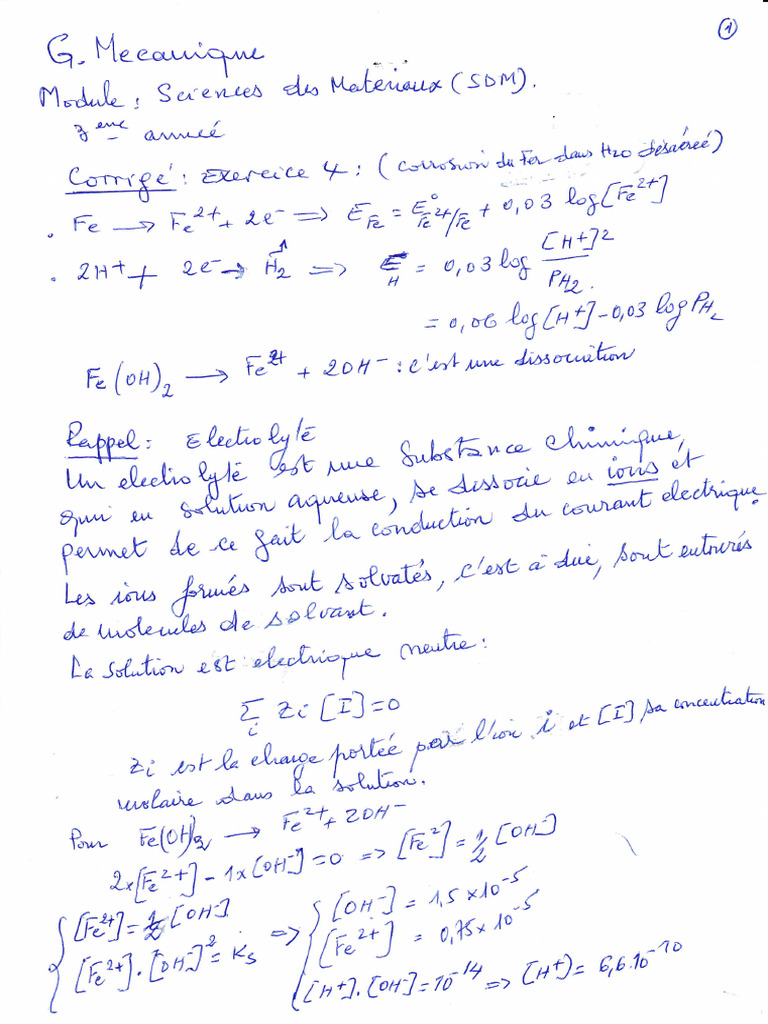 ①
G. Mecanique
Module : Sciences des Materiaux (SDM).
3eme année
Corrigé : Exercice 4 : (corrosion du Fer dans H2O désaéreé)
. Fe → Fe²⁺ + 2e⁻ ⇒ E_Fe = E°_Fe²⁺/Fe + 0,03 log[Fe²⁺]
. 2H⁺ + 2e⁻ → H₂↑ ⇒ E_H = 0,03 log [H⁺]² / P_H₂.
= 0,06 log[H⁺] - 0,03 log P_H₂
Fe(OH)₂ → Fe²⁺ + 2OH⁻ : c'est une dissociation
Rappel : Electrolyte
Un electrolyte est une substance chimique,
qui en solution aqueuse, se dissocie en ions et
permet de ce fait la conduction du courant electrique.
Les ions formés sont solvatés, c'est à dire, sont entourés
de molecules de solvant.
La solution est electrique neutre :
Σ_i Zi [I] = 0
Zi est la charge portée par l'ion i et [I] sa concentration
molaire dans la solution.
Pour Fe(OH)₂ → Fe²⁺ + 2OH⁻
2×[Fe²⁺] - 1×[OH⁻] = 0 ⇒ [Fe²] = 1/2 [OH⁻]
{ [Fe²⁺] = 1/2 [OH⁻] ⇒ { [OH⁻] = 1,5×10⁻⁵
[Fe²⁺].[OH⁻]² = Ks [Fe²⁺] = 0,75×10⁻⁵
[H⁺].[OH⁻] = 10⁻¹⁴ ⇒ [H⁺] = 6,6.10⁻¹⁰